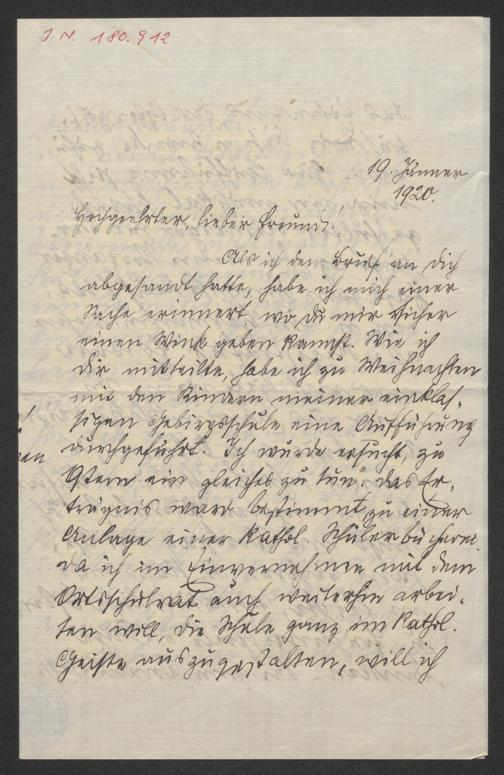 J. N. 180.912
19. Jänner
1920.
Hochgeehrter, lieber Freund!
Als ich den Brief an dich
abgesandt hatte, habe ich mich einer
Sache erinnert, wo du mir sicher
einen Wink geben kannst. Wie ich
dir mitteilte, habe ich zu Weihnachten
mit den Kindern meiner einklas-
sigen Gebirgsschule eine Aufführung
durchgeführt. Ich wurde ersucht, zu
Ostern ein gleiches zu tun. Das Er-
trägnis ward bestimmt zu einer
Anlage einer kathol. Schülerbücherei
da ich im Einvernehmen mit dem
Ortsschulrat auch weiterhin arbei-
ten will, die Schule ganz im kathol.
Geiste auszugestalten, will ich